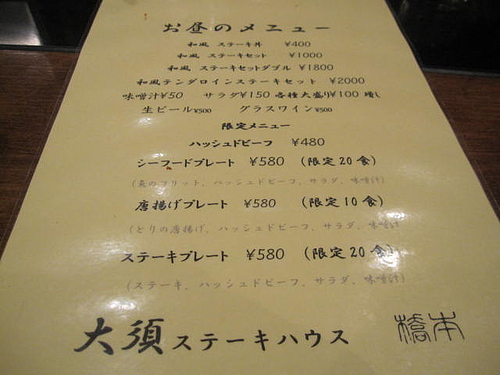 お昼のメニュー
和風 ステーキ丼 ¥400
和風 ステーキセット ¥1000
和風 ステーキセットダブル ¥1800
和風テンダロインステーキセット ¥2000
味噌汁¥50 サラダ¥150 各種大盛り¥100 増し
生ビール¥500 グラスワイン¥500
限定メニュー
ハッシュドビーフ ¥480
シーフードプレート ¥580 (限定20食)
フリット、ハッシュドビーフ、サラダ、味噌汁)
唐揚げプレート ¥580 (限定10食)
(とりの唐揚げ、ハッシュドビーフ、サラダ、味噌汁
ステーキプレート ¥580 (限定20食)
(ステーキ、ハッシュドビーフ、サラダ、味噌汁)
大須ステーキハウス 橋本